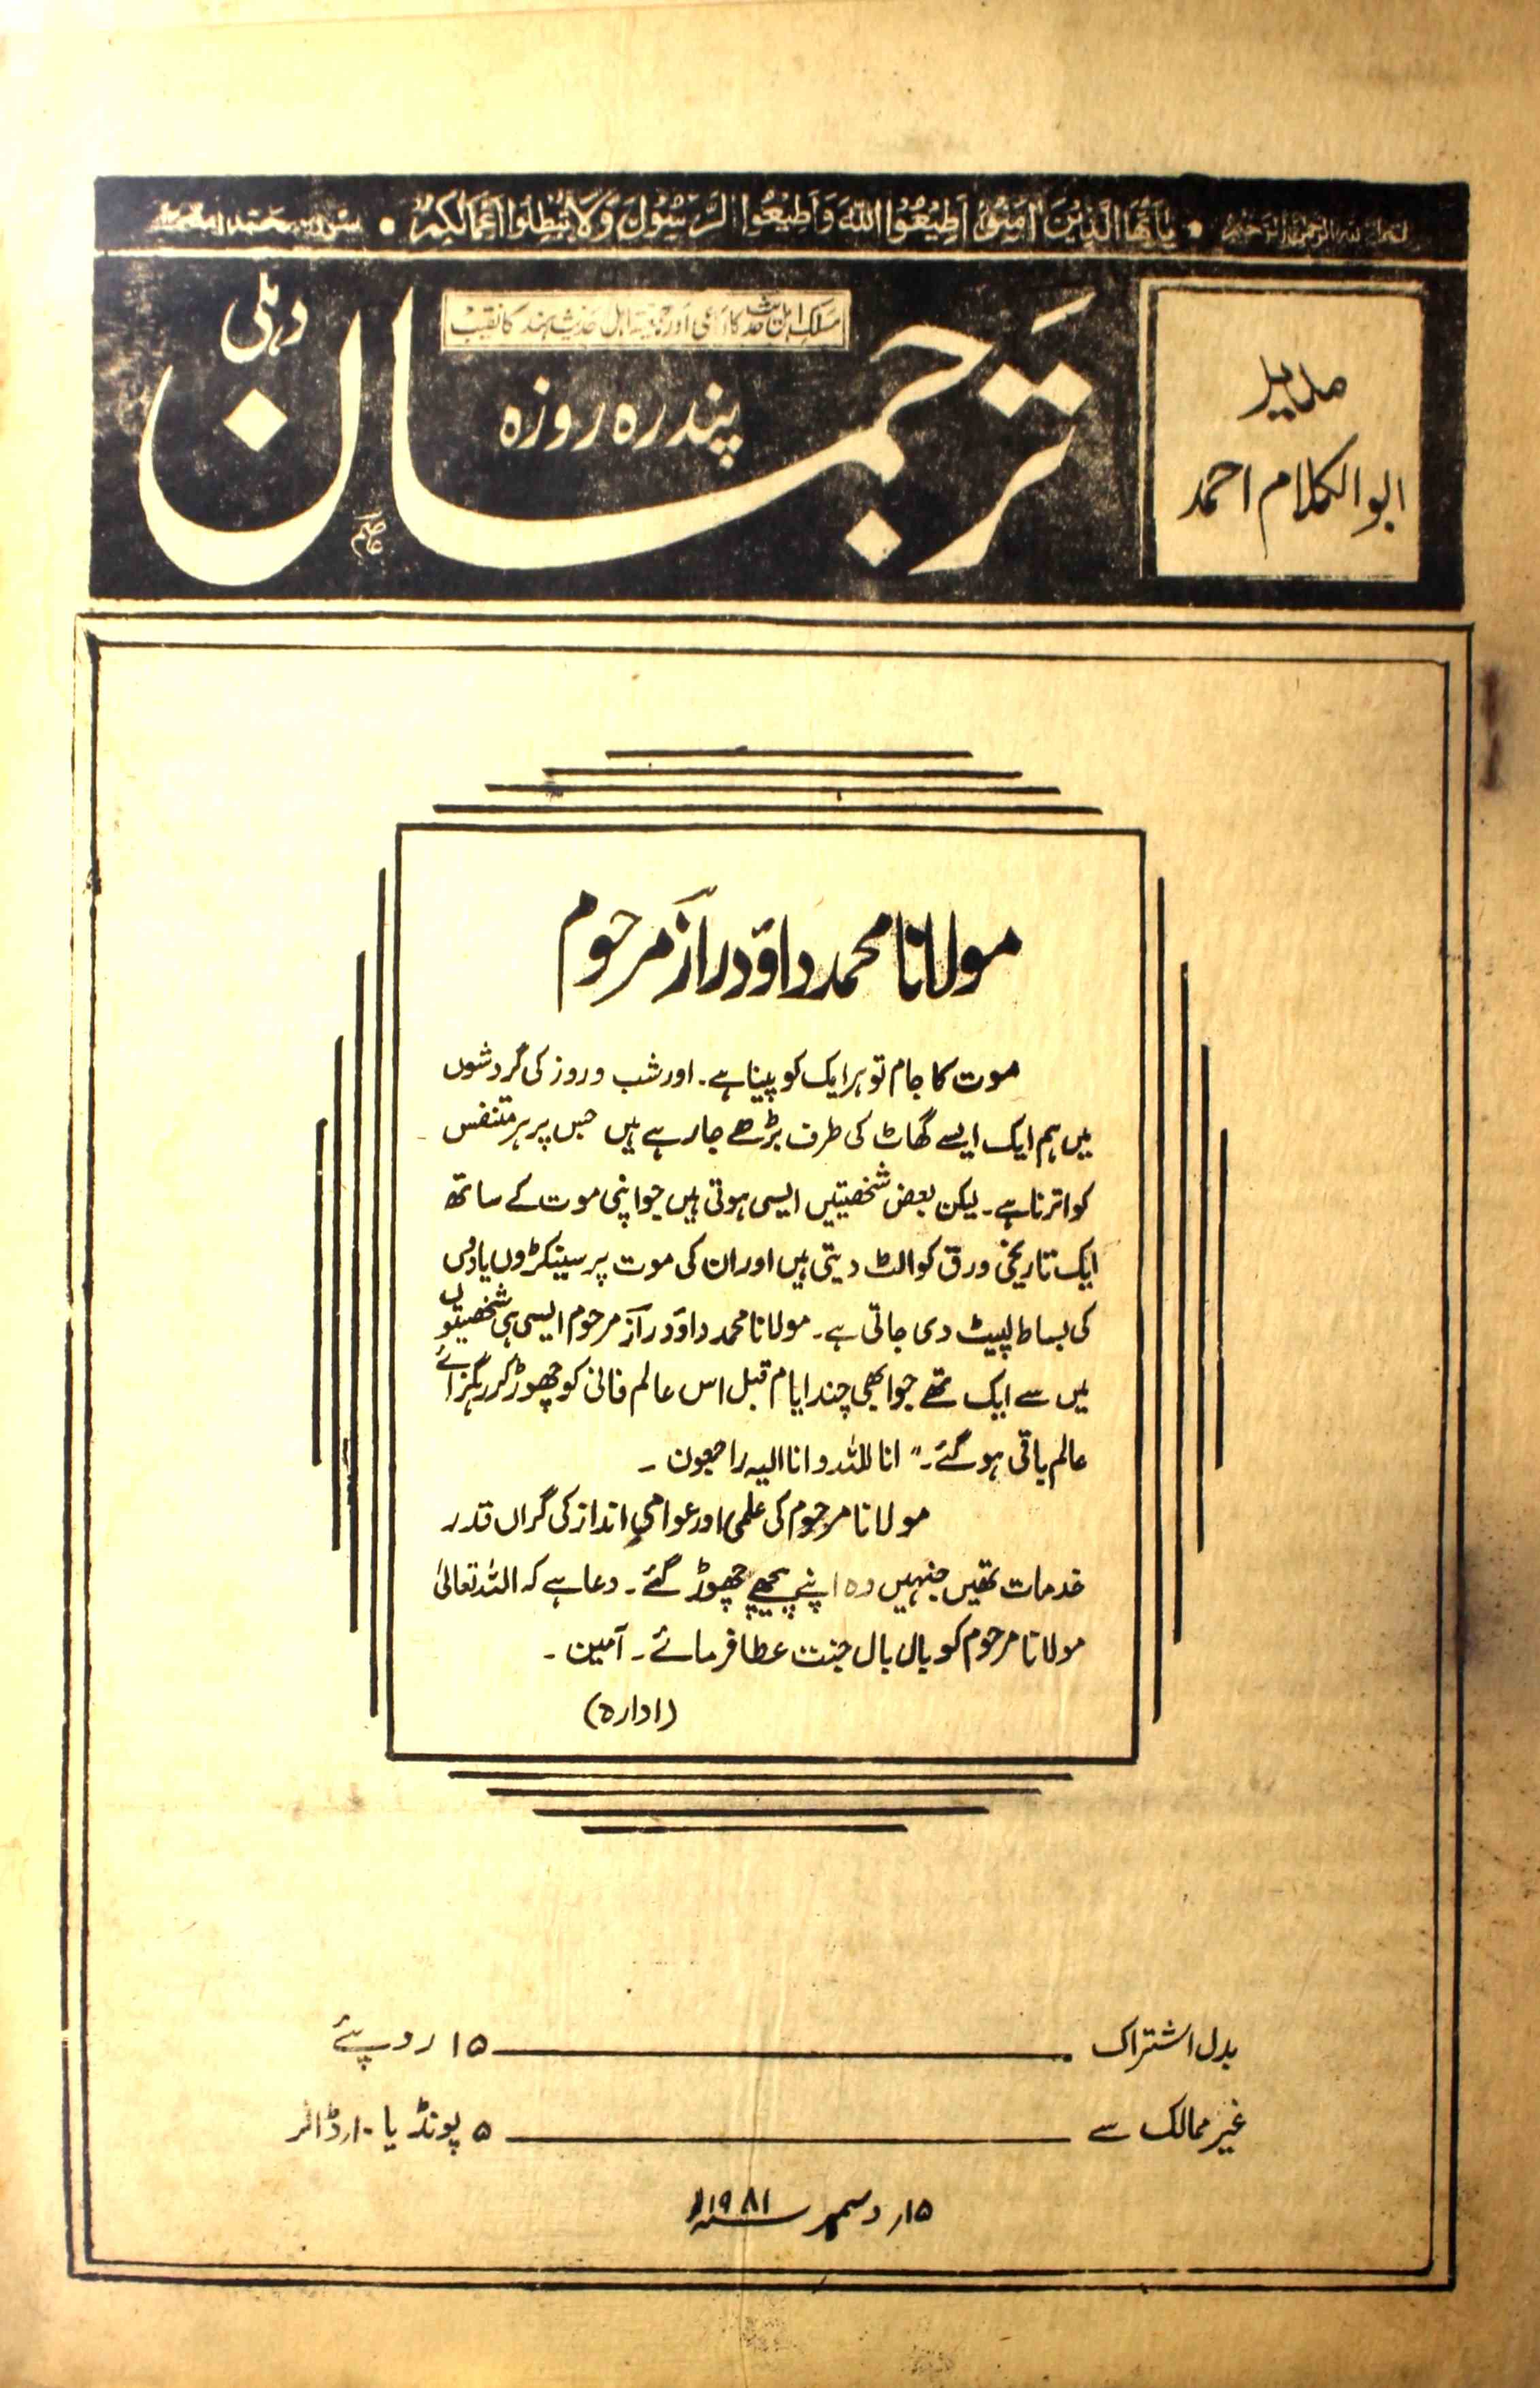 بسم اللہ الرحمٰن الرحیم • یٰۤاَیُّهَا الَّذِیْنَ اٰمَنُوْۤا اَطِیْعُوا اللّٰهَ وَاَطِیْعُوا الرَّسُوْلَ وَلَا تُبْطِلُوْۤا اَعْمَالَكُمْ • سورہ محمد
مدیر
ابوالکلام احمد
مسلک اہل حدیث کا داعی اور جمعیۃ اہل حدیث ہند کا نقیب
ترجمان
دہلی
پندرہ روزہ
مولانا محمد داوٗد رازؔ مرحوم
موت کا جام تو ہر ایک کو پینا ہے۔ اور شب و روز کی گردشوں
میں ہم ایک ایسے گھاٹ کی طرف بڑھے جا رہے ہیں جس پر ہر متنفس
کو اترنا ہے۔ لیکن بعض شخصیتیں ایسی ہوتی ہیں جو اپنی موت کے ساتھ
ایک تاریخی ورق کو الٹ دیتی ہیں اور ان کی موت پر سینکڑوں یادوں
کی بساط لپیٹ دی جاتی ہے۔ مولانا محمد داوٗد رازؔ مرحوم ایسی ہی شخصیتوں
میں سے ایک تھے جو ابھی چند ایام قبل اس عالم فانی کو چھوڑ کر رہگزائے
عالم باقی ہو گئے۔ " انا للہ و انا الیہ راجعون ۔
مولانا مرحوم کی علمی اور عوامی انداز کی گراں قدر
خدمات تھیں جنہیں وہ اپنے پیچھے چھوڑ گئے۔ دعا ہے کہ اللہ تعالیٰ
مولانا مرحوم کو بال بال جنت عطا فرمائے۔ آمین۔
(ادارہ)
بدل اشتراک ــــــ ۱۵ روپئے
غیر ممالک سے ــــــ ۵ پونڈ یا ۱۰؍ ڈالر
۱۵؍ دسمبر سنہ ۱۹۸۱ء